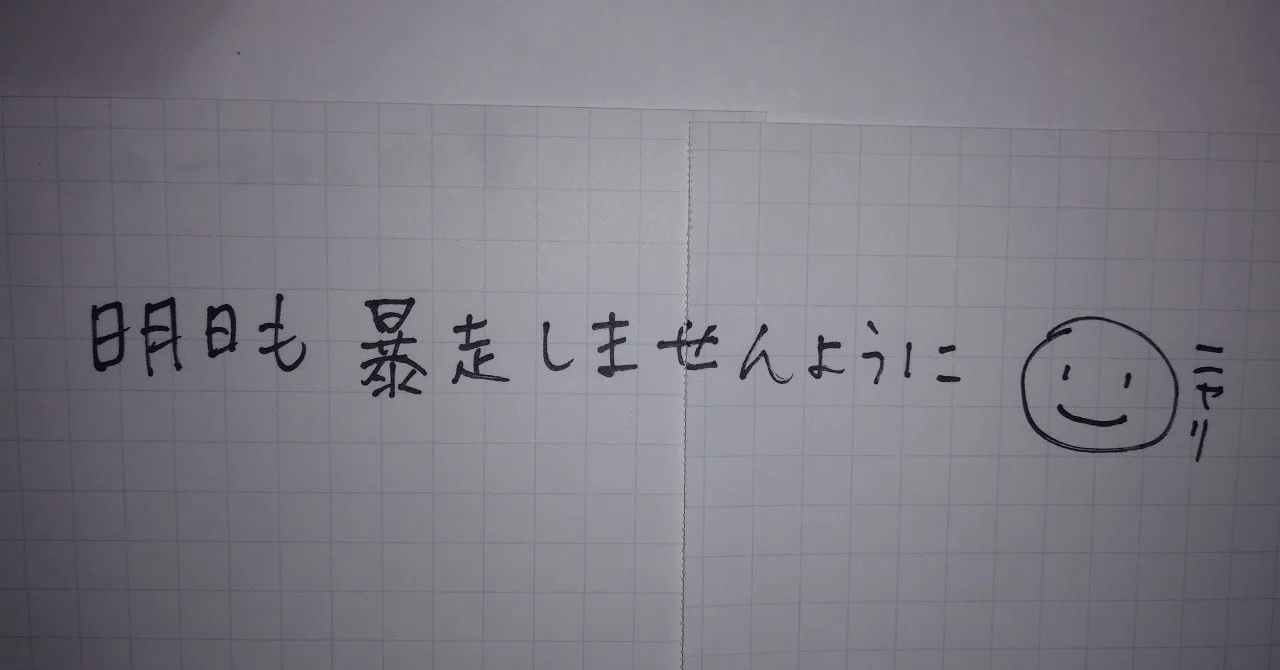 明日も暴走しませんように
ニヤリ